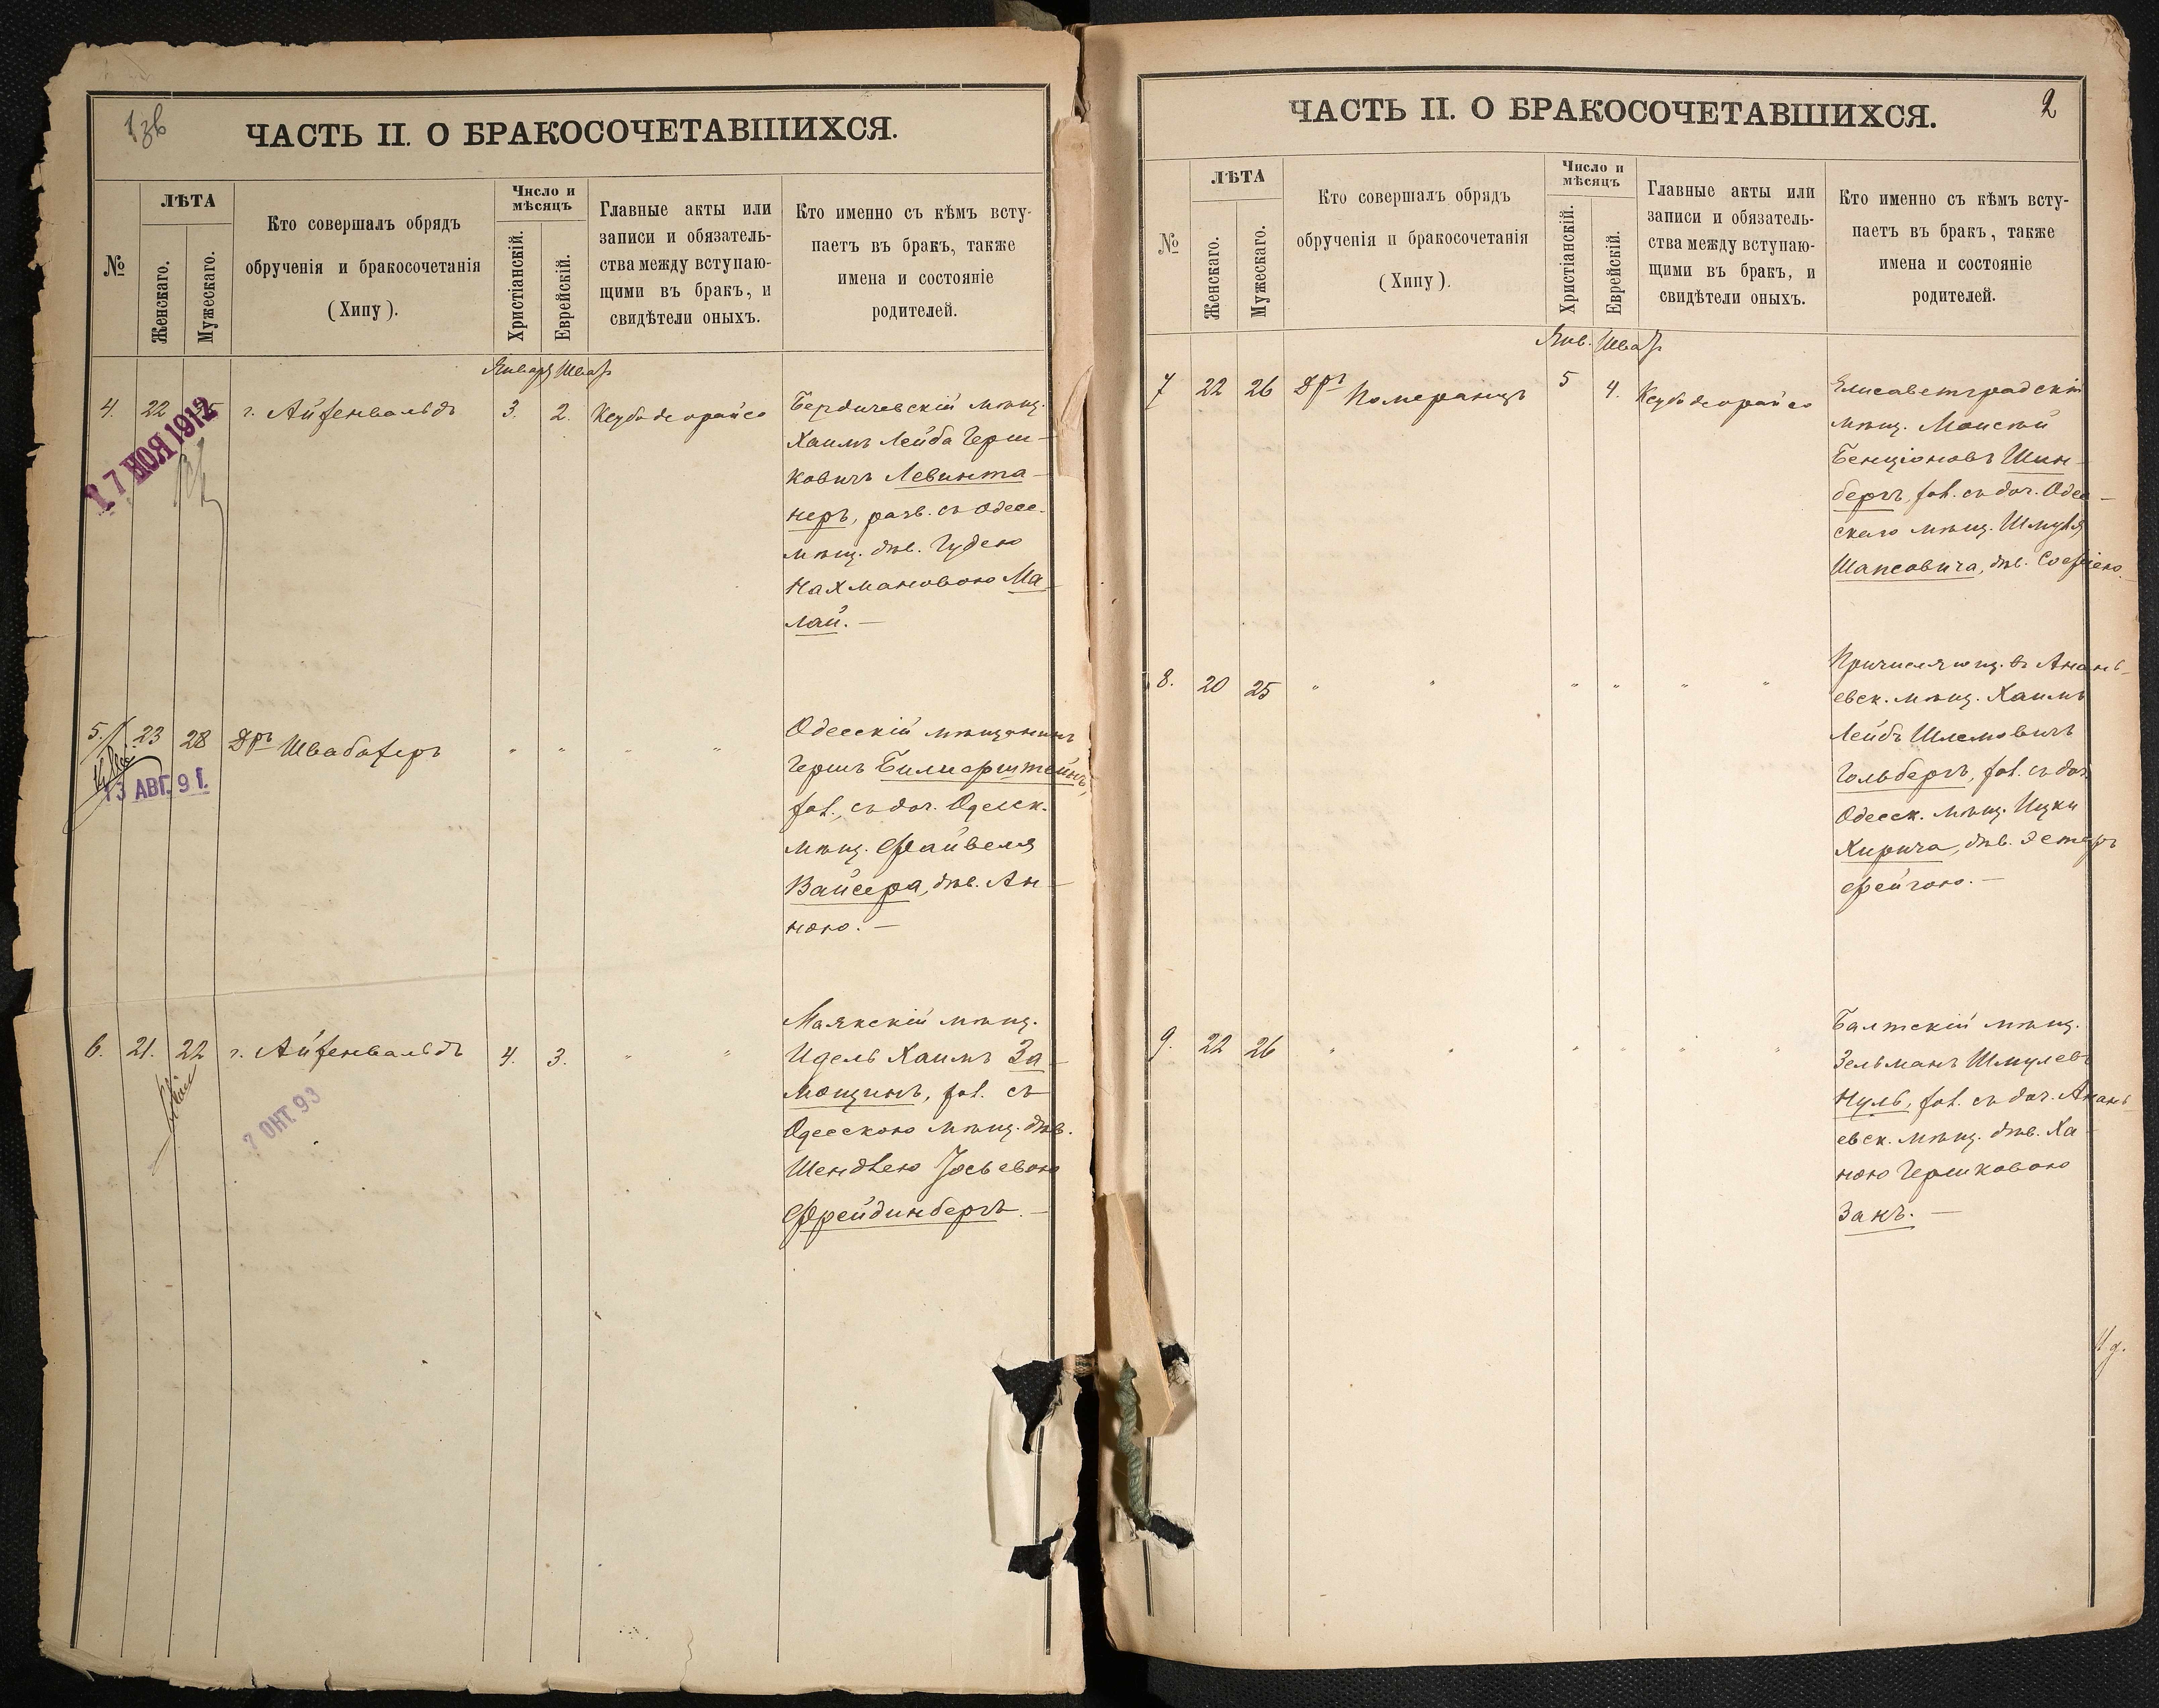 1 зв
ЧАСТЬ II. О БРАКОСОЧЕТАВШИХСЯ.
№
ЛѢТА
Женскаго.
Мужескаго.
Кто совершалъ обрядъ
обрученія и бракосочетанія
(Хипу).
Число и
мѣсяцъ
Христіанскій.
Еврейскій.
Главные акты или
записи и обязатель-
ства между вступаю-
щими въ бракъ, и
свидѣтели оныхъ.
Кто именно съ кѣмъ всту-
паетъ въ бракъ, также
имена и состояніе
родителей.
Январь Шватъ
4. 22 г. Айзенвальдъ 3. 2.
17 НОЯ 1912
Бердичевскій мѣщ.
Хаимъ Лейба Герш-
ковичъ Левинта-
неръ, разв. съ Одесс.
мѣщ. дѣв. Гудею
Нахмановою Ма-
лай. —
5. 23 28 Дръ Швабахеръ " " " "
13 АВГ. 91.
Одесскій мѣщанинъ
Гершъ
хол., съ доч. Одесск.
мѣщ. Файвеля
Вайсера, дѣв. Ан-
ною. —
6. 21. 22 г. Айзенвальдъ 4. 3. " "
7 ОКТ. 93
Маякскій мѣщ.
Идель Хаимъ За-
мощинъ, хол. съ
Одесскою мѣщ. дѣв.
Шендлею Іосьевою
Фрейдинбергъ. —
2
ЧАСТЬ II. О БРАКОСОЧЕТАВШИХСЯ.
№
ЛѢТА
Женскаго.
Мужескаго.
Кто совершалъ обрядъ
обрученія и бракосочетанія
(Хипу).
Число и
мѣсяцъ
Христіанскій.
Еврейскій.
Главные акты или
записи и обязатель-
ства между вступаю-
щими въ бракъ, и
свидѣтели оныхъ.
Кто именно съ кѣмъ всту-
паетъ въ бракъ, также
имена и состояніе
родителей.
Янв. Шватъ
7 22 26 Дръ Померанцъ 5 4.
Елисаветградскій
мѣщ. Моисей
Бенціоновъ Шин-
бергъ, хол. съ доч. Одес-
скаго мѣщ. Шмуля
Шапсовича, дѣв. Софіею.
8. 20 25 " " " " " "
Причисляющ. въ Анань-
евск. мѣщ. Хаимъ
Лейбъ Шлемовичъ
Гольбергъ, хол. съ доч.
Одесск. мѣщ. Ицки
Кирича, дѣв. Эстеръ
Фейгою. —
9. 22 26 " " " " " "
Балтскій мѣщ.
Зельманъ Шмулевъ
Нуль, хол. съ доч. Анань-
евск. мѣщ. дѣв. Ха-
ною Гершковою
Закъ. —